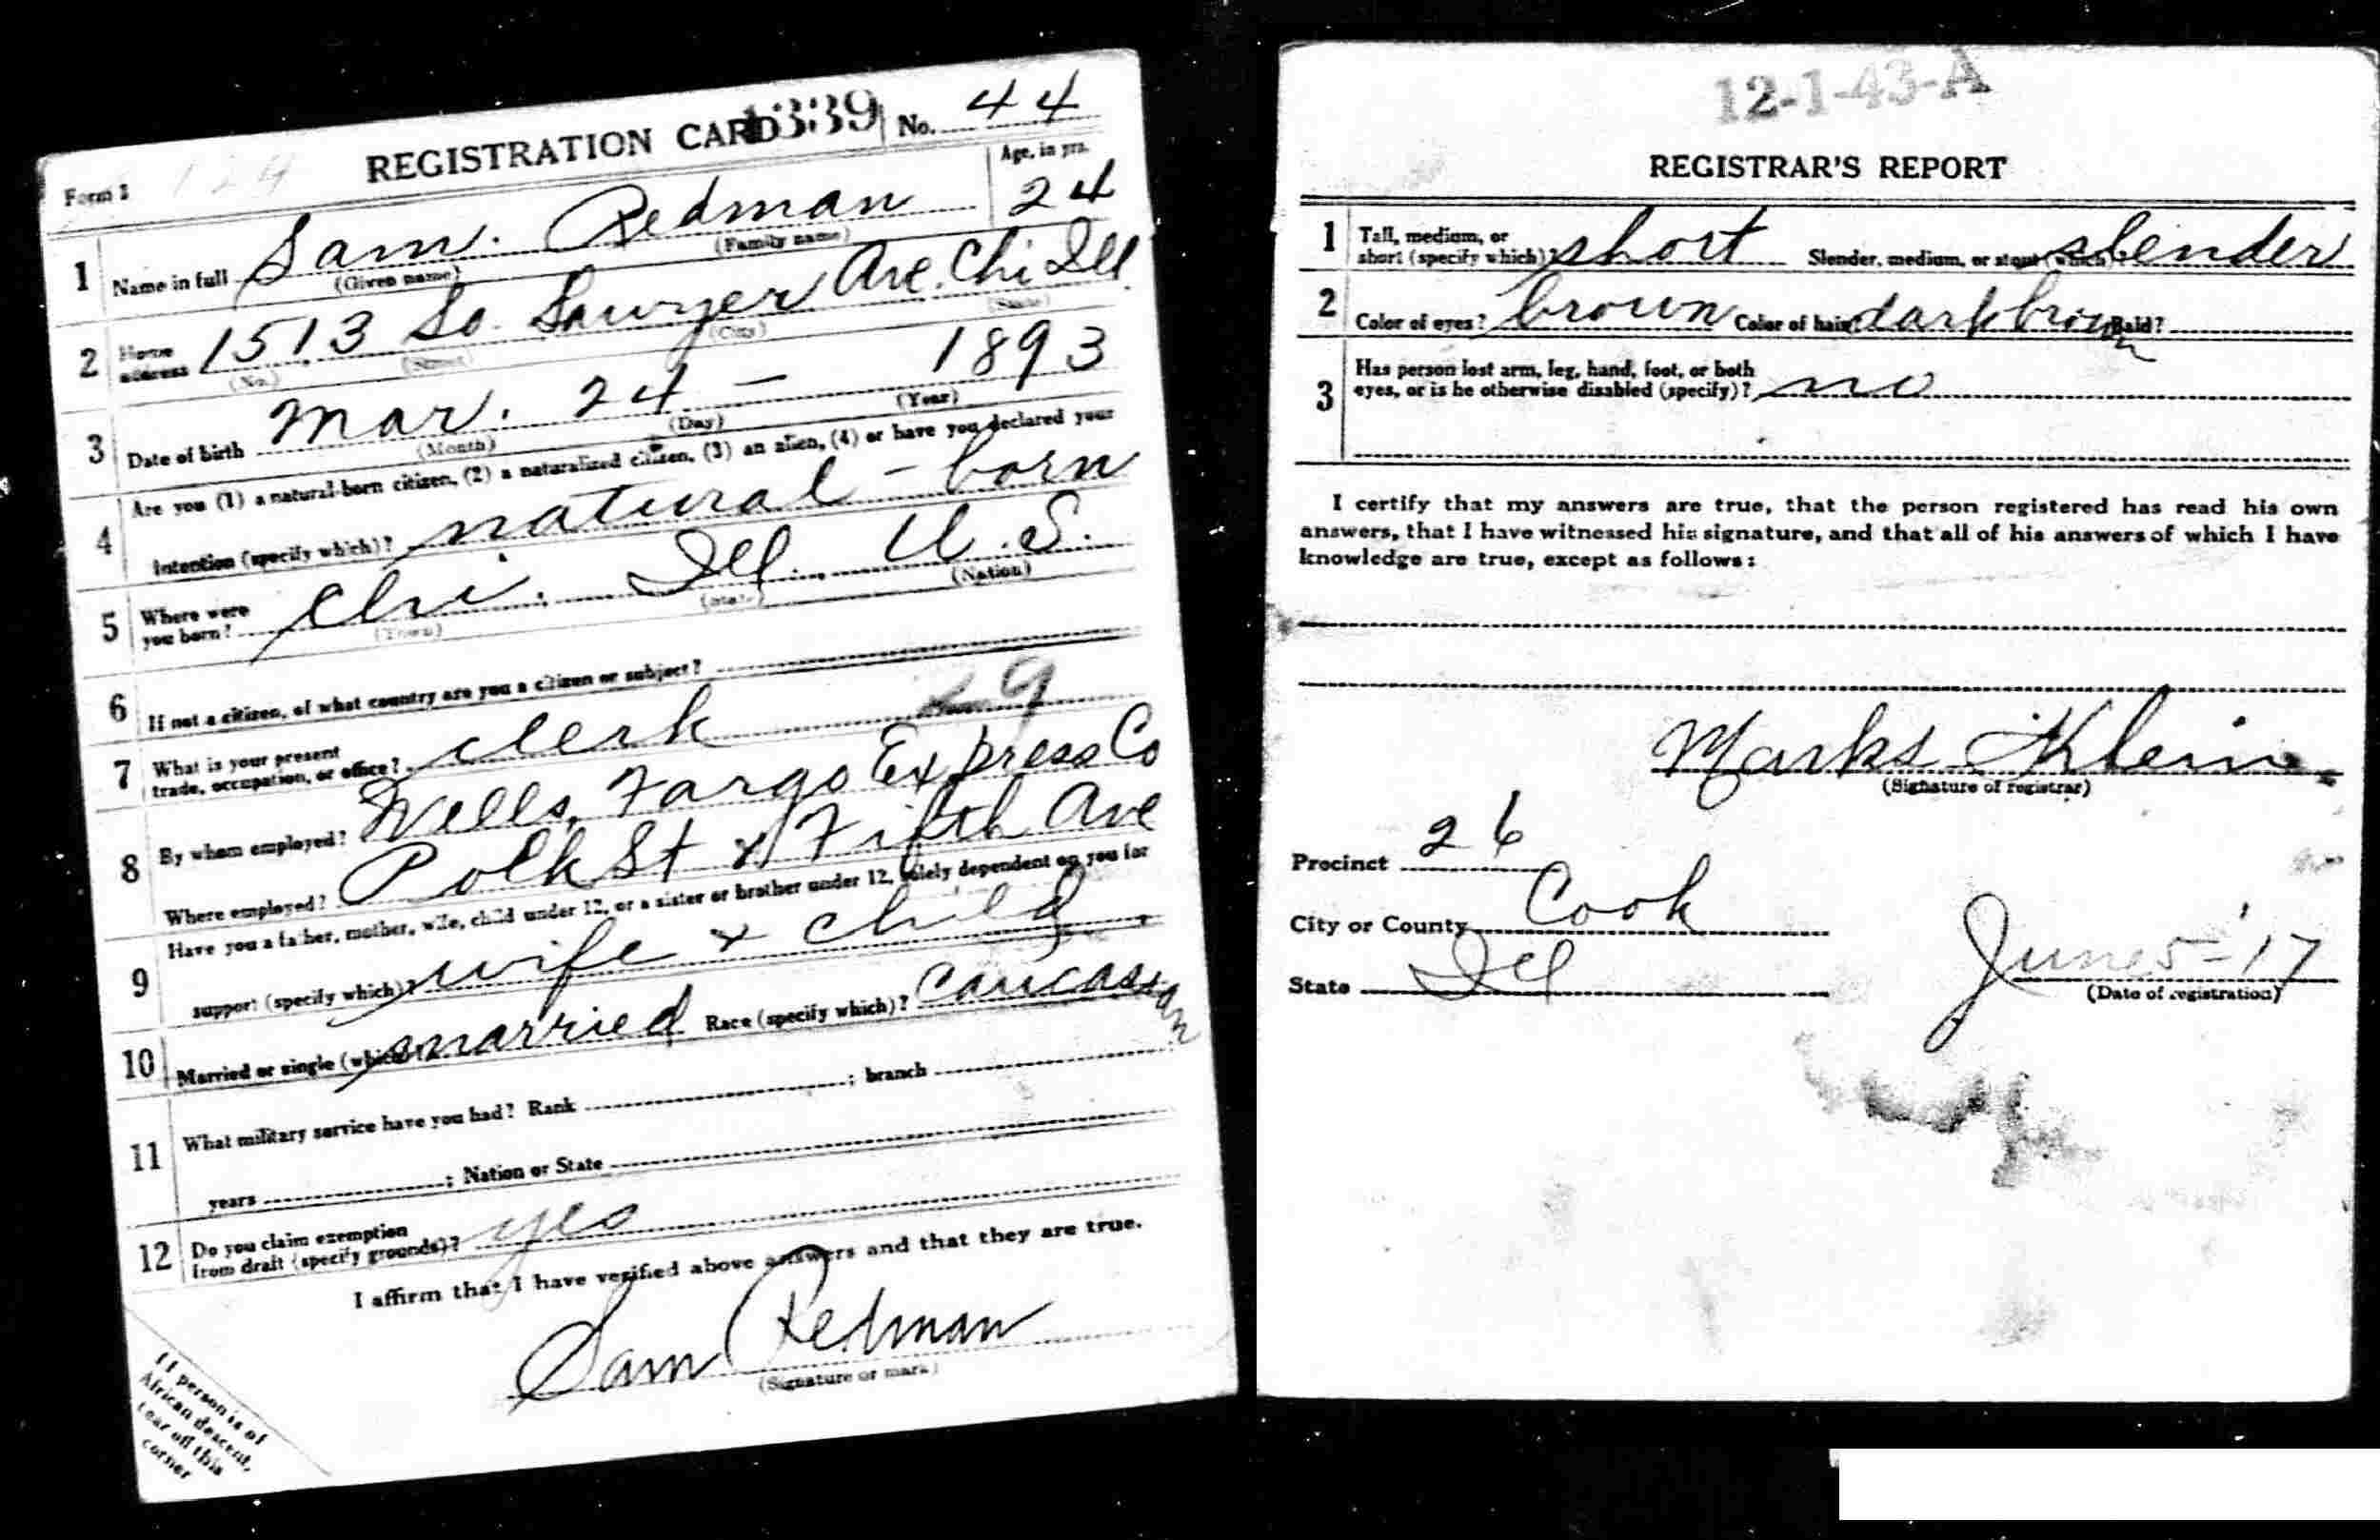 Form 1 REGISTRATION CARD 1339 No. 44
Age, in yrs.
1 Name in full Sam. Redman 24
(Given name) (Family name)
2 Home address 1513 So. Sawyer Ave. Chi Ill
(No.) (Street) (City) (State)
3 Date of birth Mar. 24 – 1893
(Month) (Day) (Year)
4 Are you (1) a natural-born citizen, (2) a naturalized citizen, (3) an alien, (4) or have you declared your
intention (specify which)? natural-born
5 Where were you born? Chi. Ill. U.S.
(Town) (State) (Nation)
6 If not a citizen, of what country are you a citizen or subject?
7 What is your present
trade, occupation, or office? clerk 9
8 By whom employed? Wells, Fargo Express Co
Where employed? Polk St & Fifth Ave
9 Have you a father, mother, wife, child under 12, or a sister or brother under 12, solely dependent on you for
support (specify which)? wife & child.
10 Married or single (which)? married Race (specify which)? Caucasian
11 What military service have you had? Rank ; branch
years ; Nation or State
12 Do you claim exemption
from draft (specify grounds)? yes
I affirm that I have verified above answers and that they are true.
Sam Redman
(Signature or mark)
If person is of
African descent,
tear off this
corner
12-1-43-A
REGISTRAR'S REPORT
1 Tall, medium, or
short (specify which)? short Slender, medium, or stout (which)? slender
2 Color of eyes? brown Color of hair? dark brown Bald?
3 Has person lost arm, leg, hand, foot, or both
eyes, or is he otherwise disabled (specify)? no
I certify that my answers are true, that the person registered has read his own
answers, that I have witnessed his signature, and that all of his answers of which I have
knowledge are true, except as follows:
Marks Klein
(Signature of registrar)
Precinct 26
City or County Cook
State Ill June 5-'17
(Date of registration)